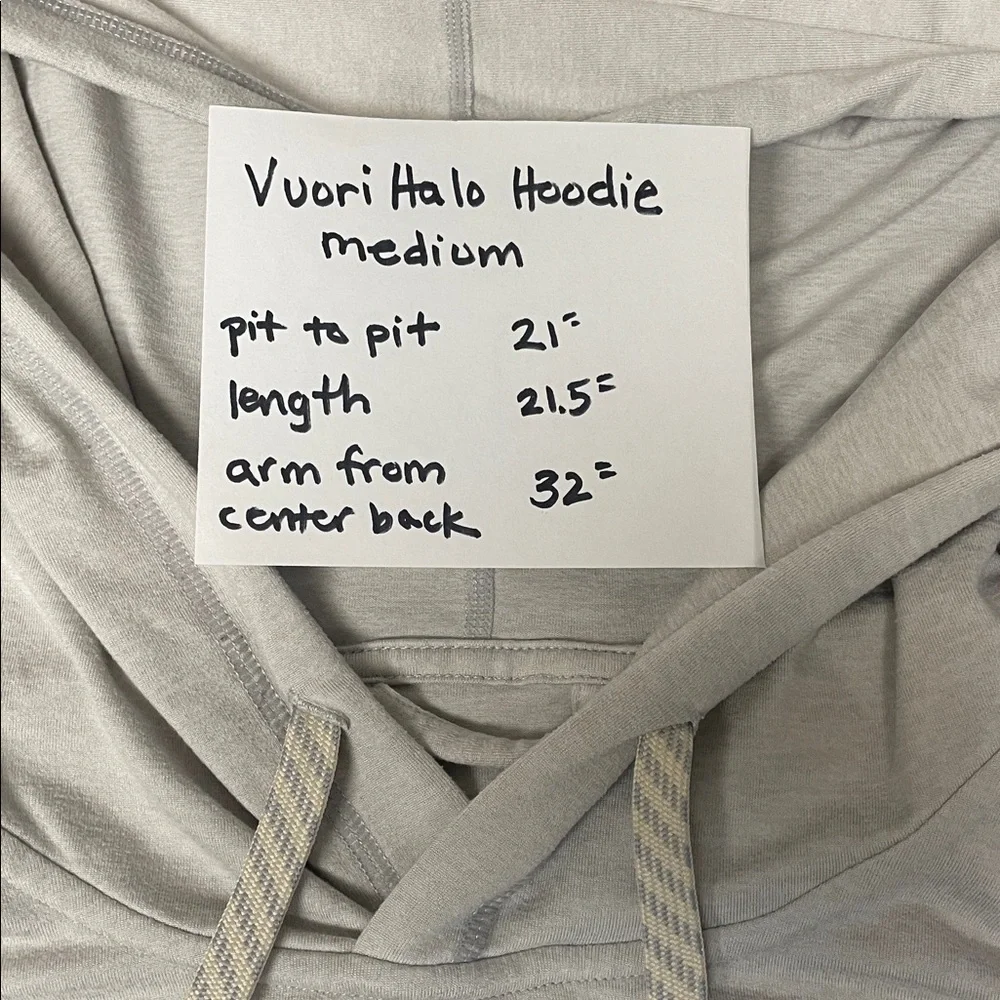 Vuori Halo Hoodie
medium
pit to pit 21"
length 21.5"
arm from
center back 32"